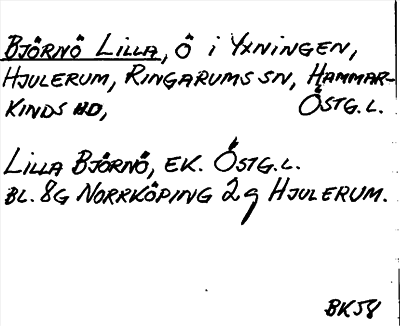 BJÖRNÖ LILLA, Ö i YXNINGEN,
HJULERUM, RINGARUMS SN, HAMMAR-
KINDS HD, ÖSTG.L.
LILLA BJÖRNÖ, EK. ÖSTG.L.
BL. 8G NORRKÖPING 2g HJULERUM.
BK58